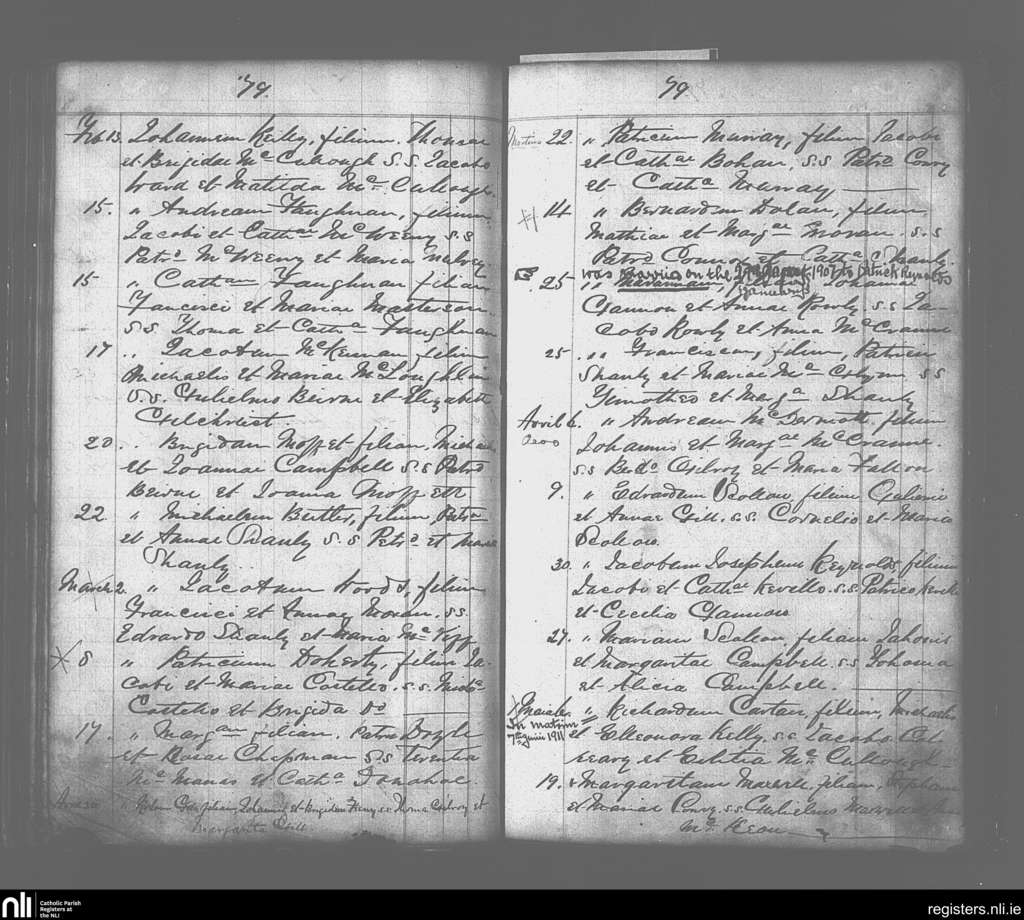 79.
Feb 13. Johannem Keiley, filium Thomae
et Brigidae Mc Cullough S.S. Jacobo
Ward et Matilda Mc Cullough.
15. " Andream Faughnan, filium
Jacobi et Cathae McWeeny s.s
Pato McWeeny et Maria Mulvey
15 " Catham Faughnan filiam
Francisci et Mariae Masterson.
S.S Thoma et Catha Faughnan
17 " Jacobum McKeirnan filium
Michaelis et Mariae McLoughlin
S.S. Gulielmo Beirne et Elizabeth
Gilchrist
20. " Brigidam Moffet filiam
et Joannae Campbell S.S Pato
Beirne et Joanna Moffett
22 " Michaelem Butler, filium Patrii
et Annae Shanly S.S Petro et Maria
Shanly.
March 2. " Jacobum Woods, filium
Francisci et Annae Moran. ss
Edvardo Shanly et Maria Mc
8 " Patricium Doherty, filium Ja-
cobi et Mariae Costello. s.s.
Costello et Brigida do
17. " Margam filiam Patrii Doyle
et Rosae Chapman S.S Terentia
McManus et Catha Donahoe.
filiam, Johannis et Brigidam s.s Thoma et
Margarita Gill.
79
Martius 22. " Patricium Murray, filium Jacobi
et Cathae Bohan, s.s Pato Conry
et Catha Murray
14 " Bernardum Dolan, filium
Mathiae et Margae Moran. s.s
Pato Connor et Catha Shanly.
was married on the 1907 to Patrick Reynolds
25 " Mariannam, Johannis
Gannon et Annae Rowly s.s Ja-
cobo Rowly et Anna McCranne
25. " Franciscum, filium, Patricii
Shanly et Mariae Mc s.s
Timotheo et Marga Shanly
April 6. " Andream McDermott filium
Johannis et Margae McCranne.
s.s Gilroy et Maria Fallon.
9. " Edvardum Scollan, filium
et Annae Gill. s.s. Cornelio et Maria
Scollan.
30. " Jacobum Josephum Reynolds filium
Jacobi et Cathae Keville s.s Patricio
et Cecilia Gannon
27. " Mariam Scollan, filiam Johannis
et Margaritae Campbell. s.s Johanna
et Alicia Campbell.
" Richardum Cartan, filium, Michaelis
In matrim
7th Junii 1911
et Elleonora Kelly. s.s Jacobo
et Mc Cullough
19. " Margaretam filiam, Stephani
et Mariae Conry s.s Gulielmo
McKeon
nli
Catholic Parish
Registers at
the NLI
registers.nli.ie